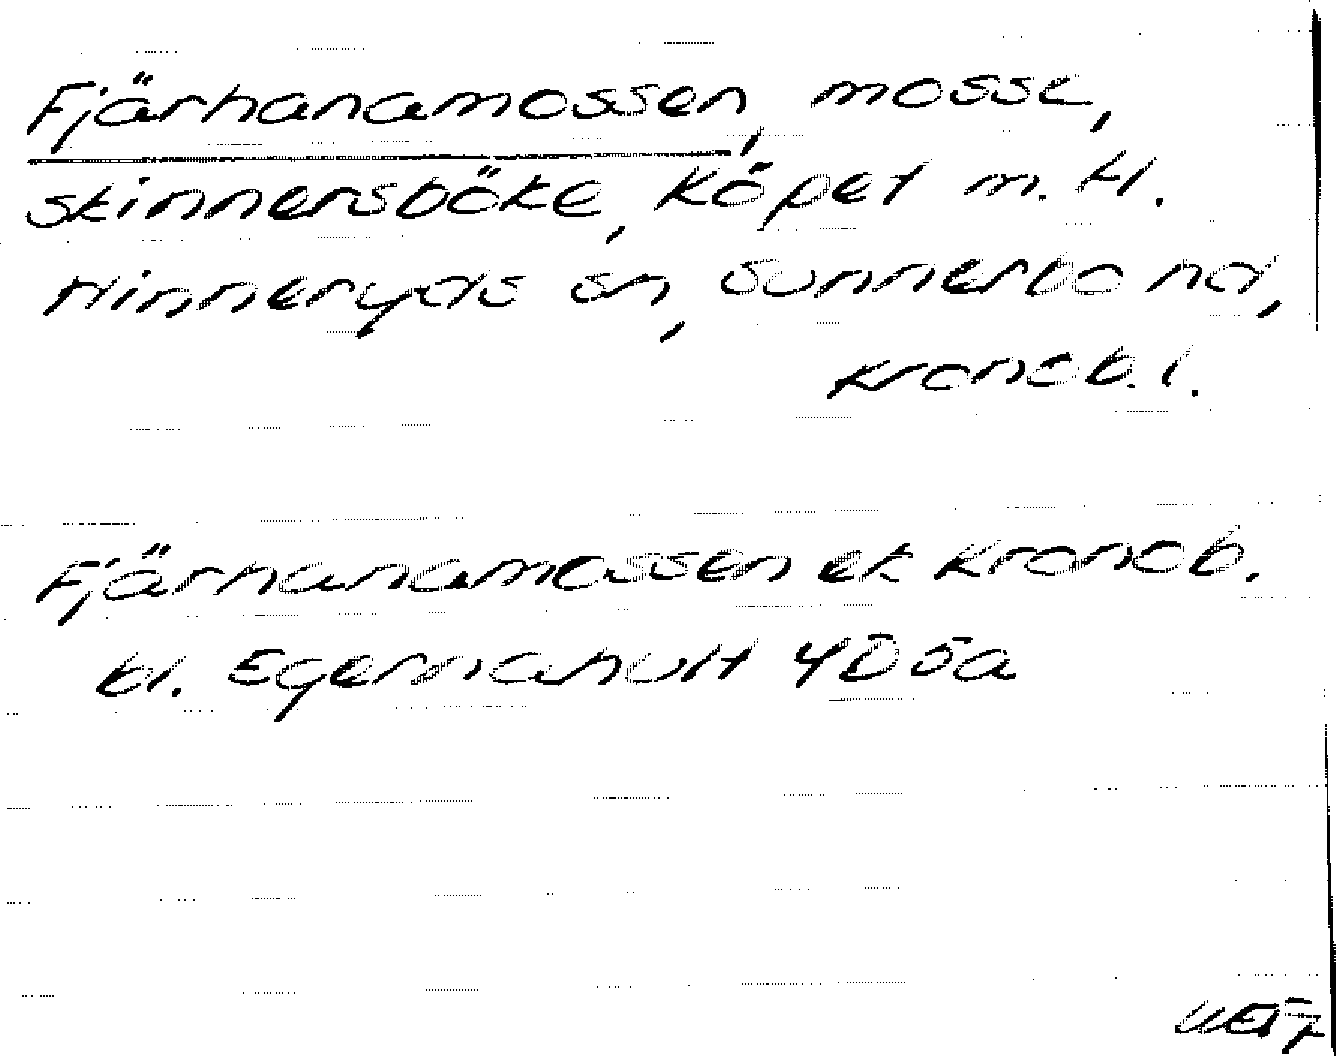 Fjärhanamossen, mosse,
Skinnersböke, Köpet m. fl.
Hinneryds sn, Sunnerbo hd,
Kronob. l.
Fjärhanamossen ek Kronob.
bl. Egernahult 4D5a